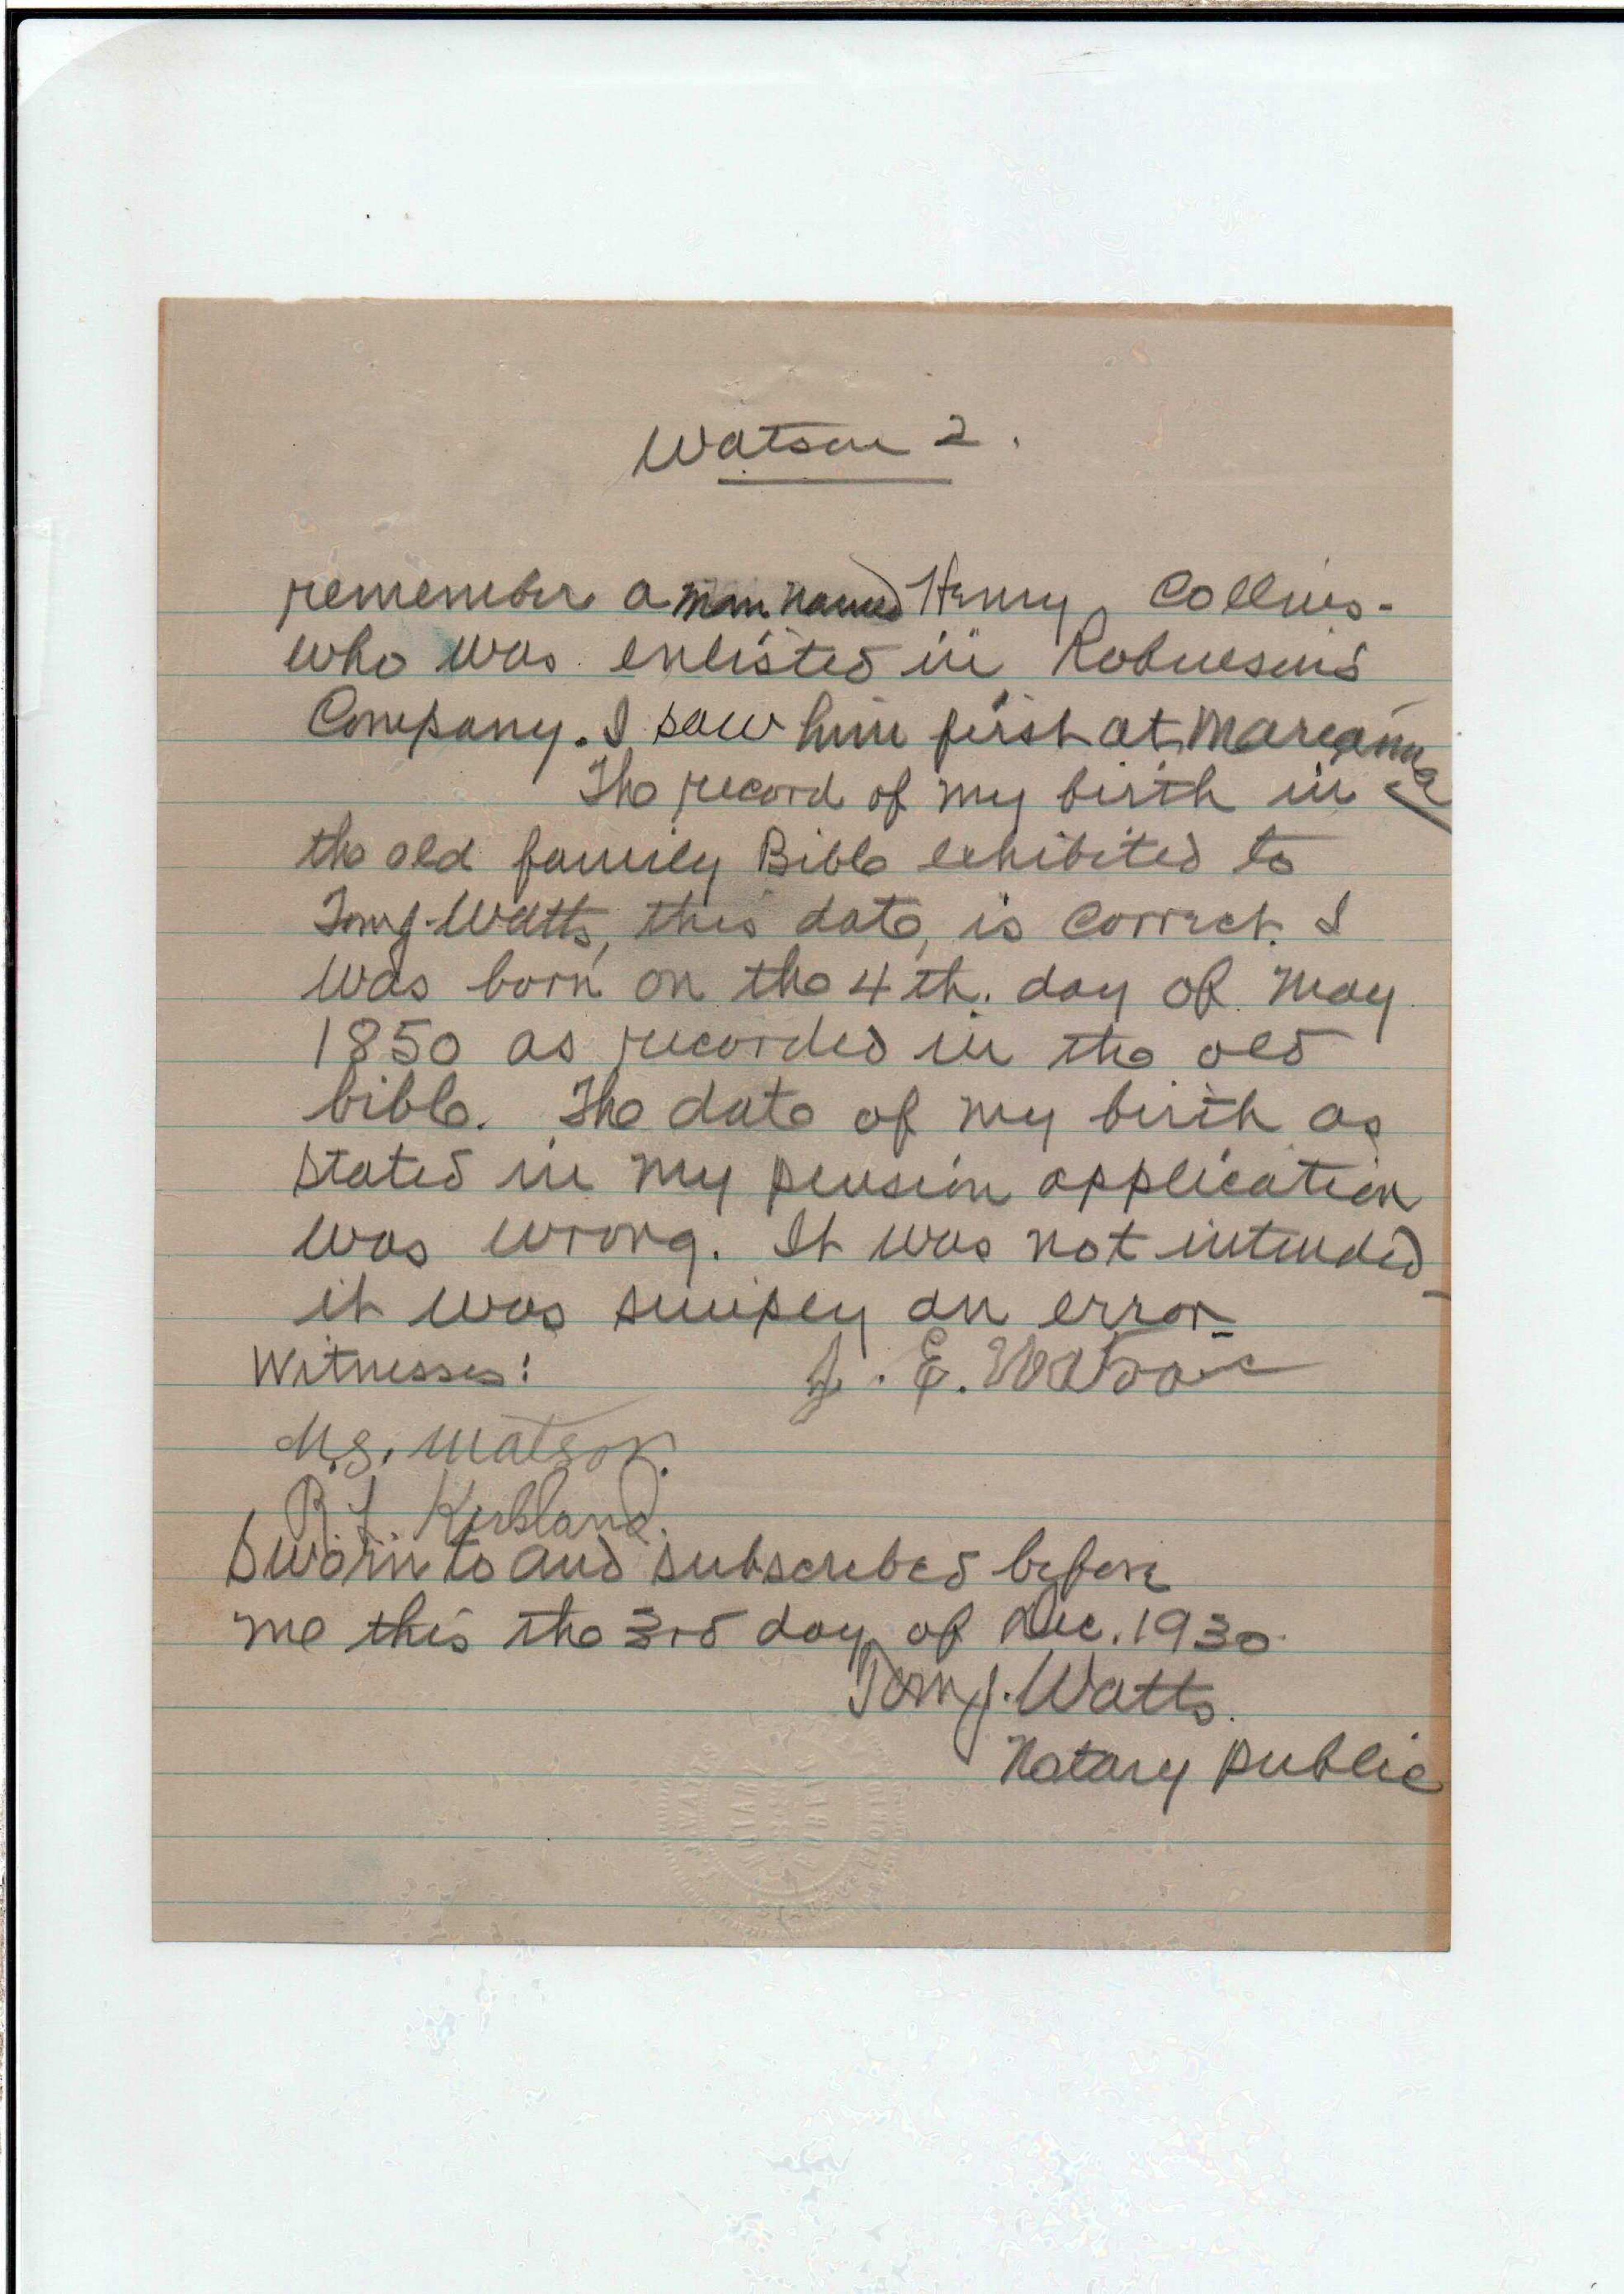 Watson 2.
remember a man named Henry Collins -
who was enlisted in Robinson's
Company. I saw him first at Marianna
The record of my birth in
the old family Bible exhibited to
Tom J. Watts, this date, is correct. I
was born on the 4th. day of May
1850 as recorded in the old
bible. The date of my birth as
stated in my pension application
was wrong. It was not intended -
it was simply an error -
Witnesses:
J. E. Watson
M. S. Watson.
R L Kirkland.
Sworn to and subscribed before
me this the 3rd day of Dec. 1930
Tom J. Watts.
Notary Public